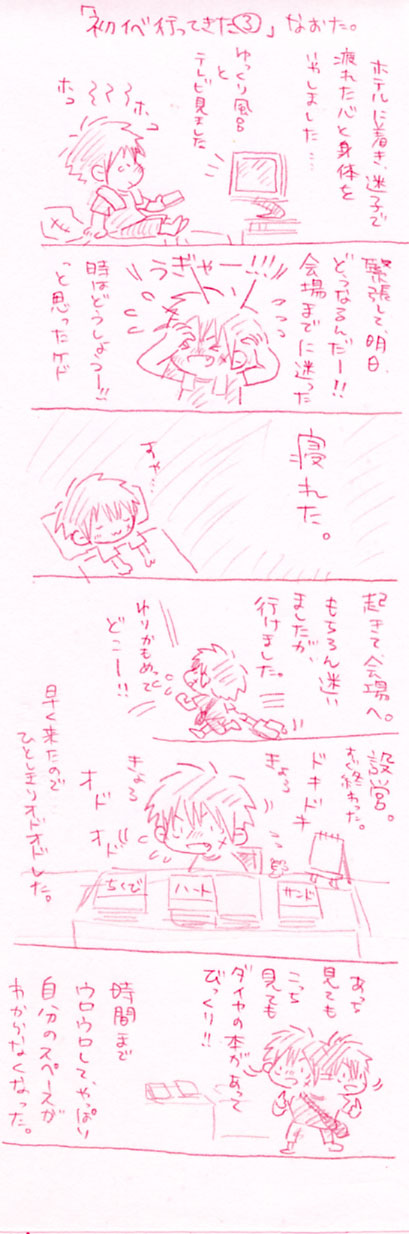 「初イベ行ってきた③」なおた。
ホテルに着き、迷子で
疲れた心と身体を
いやしました…
ゆっくり風呂
と
テレビ見ました
ホコ
ホコ
緊張して、明日、
どうなるんだー!!
会場までに迷った
うぎゃー!!!
時はどうしようー!!
っと思ったケド
寝れた。
すや…
起きて、会場へ。
もちろん迷い
ましたが、
行けました。
ゆりかもめって
どこー!!
設営。
すぐ終わった。
ドキドキ
きょろ
きょろ
オド
オド
早く来たので
ひとしきりオドオドした。
ちくび
ハート
サンド
あっち
見ても
こっち
見ても
ダイヤの本があって
びっくり!!
時間まで
ウロウロして、やっぱり
自分のスペースが
わからなくなった。